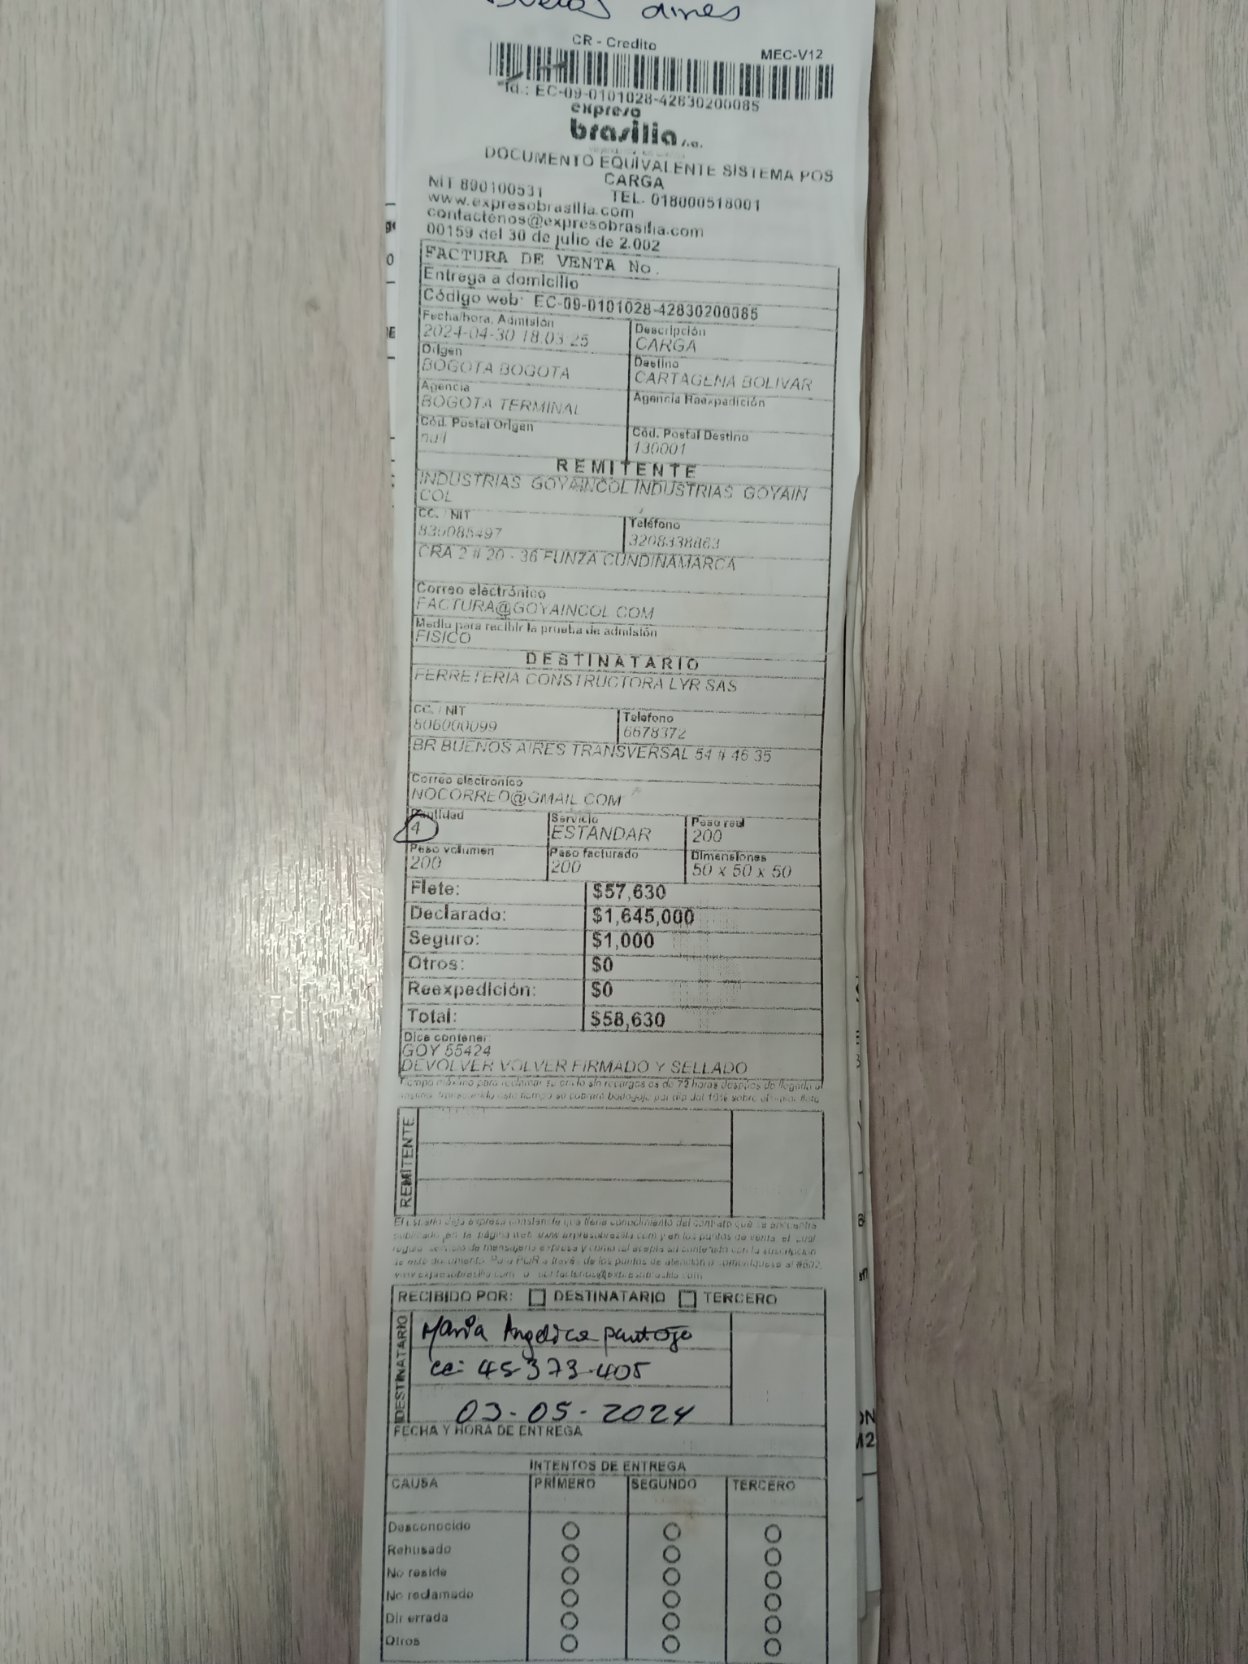 Buenos aires
CR - Credito MEC-V12
Id.: EC-09-0101028-42830200085
expreso
brasilia s.a.
DOCUMENTO EQUIVALENTE SISTEMA POS
CARGA
NIT 890100531 TEL. 018000518001
www.expresobrasilia.com
contactenos@expresobrasilia.com
00159 del 30 de julio de 2.002
FACTURA DE VENTA No.
Entrega a domicilio
Código web: EC-09-0101028-42830200085
Fecha/hora. Admisión Descripción
2024-04-30 18:03:25 CARGA
Origen Destino
BOGOTA BOGOTA CARTAGENA BOLIVAR
Agencia Agencia Reexpedición
BOGOTA TERMINAL
Cód. Postal Origen Cód. Postal Destino
null 130001
REMITENTE
INDUSTRIAS GOYAINCOL INDUSTRIAS GOYAIN
COL
CC. / NIT Teléfono
830085497 3208338863
CRA 2 # 20 - 36 FUNZA CUNDINAMARCA
Correo electrónico
FACTURA@GOYAINCOL.COM
Medio para recibir la prueba de admisión
FISICO
DESTINATARIO
FERRETERIA CONSTRUCTORA LYR SAS
CC. / NIT Teléfono
806000099 6678372
BR BUENOS AIRES TRANSVERSAL 54 # 46 35
Correo electrónico
NOCORREO@GMAIL.COM
Cantidad Servicio Peso real
4 ESTANDAR 200
Peso volumen Peso facturado Dimensiones
200 200 50 x 50 x 50
Flete: $57,630
Declarado: $1,645,000
Seguro: $1,000
Otros: $0
Reexpedición: $0
Total: $58,630
Dice contener
GOY 55424
DEVOLVER VOLVER FIRMADO Y SELLADO
Tiempo máximo para reclamar su envío sin recargos es de 72 horas después de llegada al
REMITENTE
RECIBIDO POR: DESTINATARIO TERCERO
DESTINATARIO
Maria Angelica pantoja
cc: 45-373-405
03-05-2024
FECHA Y HORA DE ENTREGA
INTENTOS DE ENTREGA
CAUSA PRIMERO SEGUNDO TERCERO
Desconocido
Rehusado
No reside
No reclamado
Dir errada
Otros